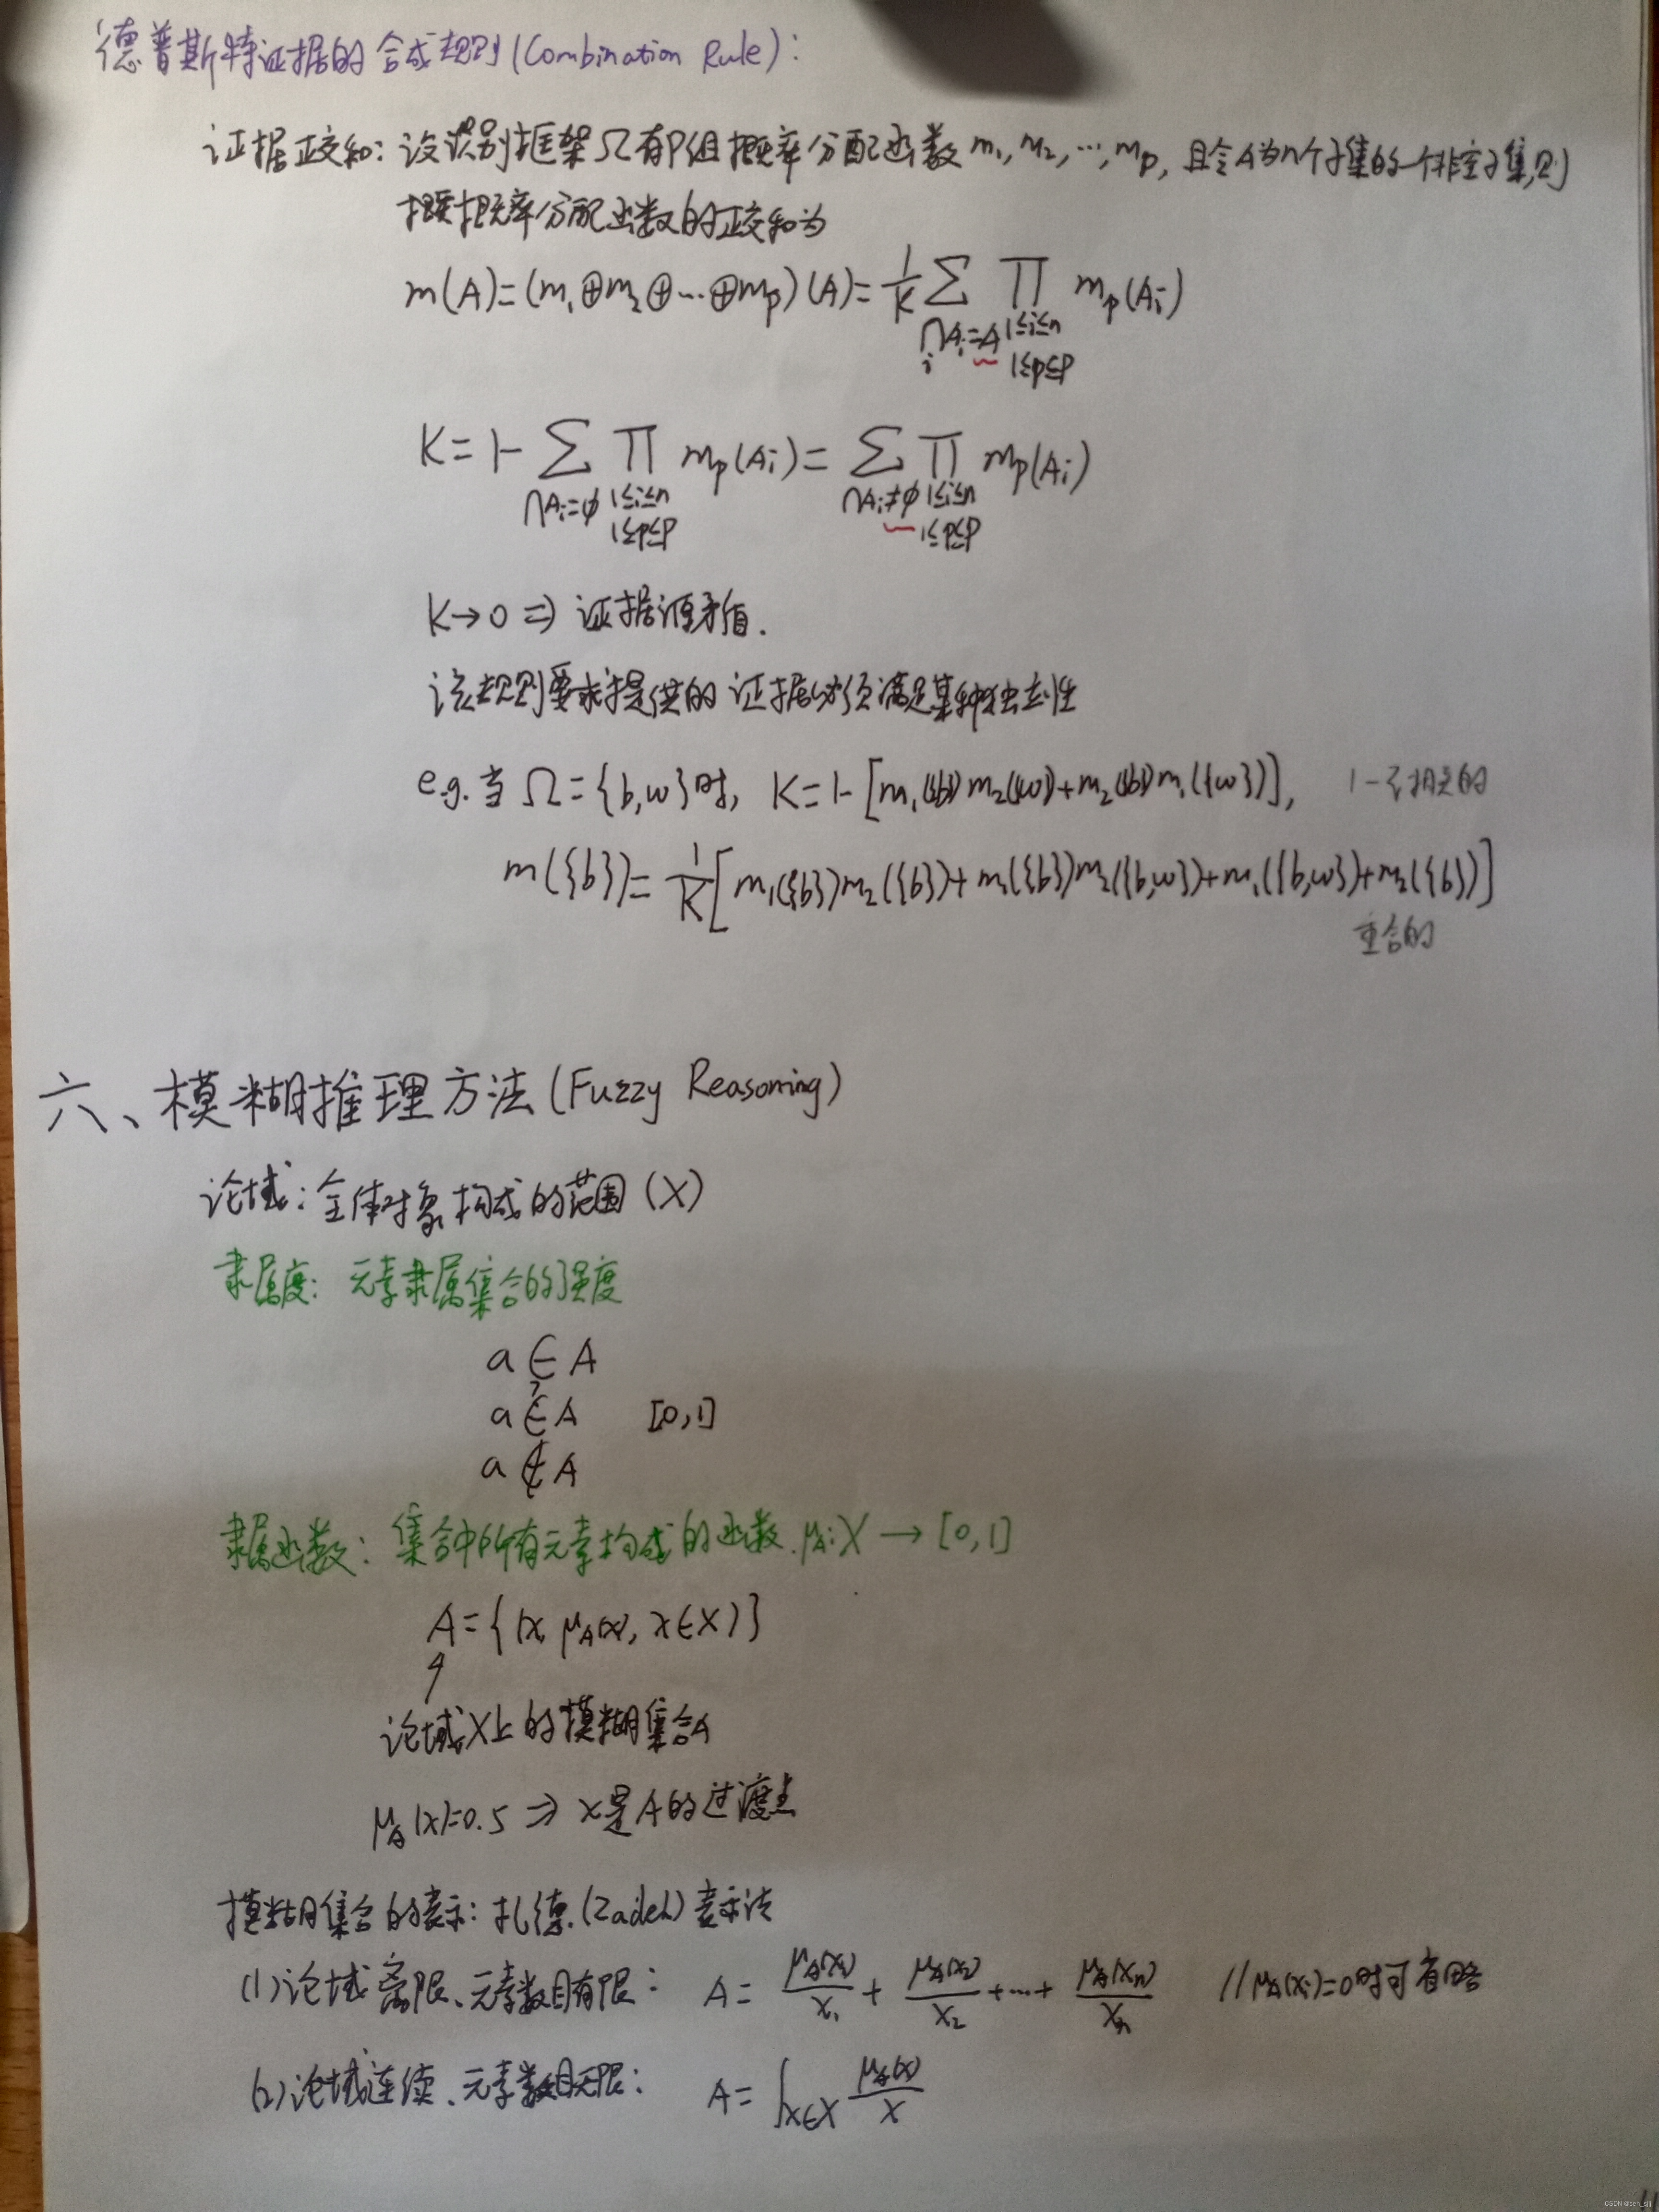 德普斯特证据的合成规则(Combination Rule):
证据正交和: 设识别框架Ω有P组概率分配函数m₁, m₂, …, mₚ, 且令A为n个子集的一个非空子集,则
概率分配函数的正交和为
m(A)=(m₁⊕m₂⊕…⊕mₚ)(A)= 1/K ∑ ∏ mₚ(Aᵢ)
∩Aᵢ=A 1≤i≤n
i 1≤p≤P
K=1- ∑ ∏ mₚ(Aᵢ)= ∑ ∏ mₚ(Aᵢ)
∩Aᵢ=φ 1≤i≤n ∩Aᵢ≠φ 1≤i≤n
1≤p≤P 1≤p≤P
K→0 ⇒ 证据源矛盾.
该规则要求提供的证据必须满足某种独立性
e.g. 当 Ω={b,w}时, K=1-[m₁({b})m₂({w})+m₂({b})m₁({w})], 1-相交的
m({b})= 1/K [m₁({b})m₂({b})+m₁({b})m₂({b,w})+m₁({b,w})+m₂({b})]
重合的
六、模糊推理方法(Fuzzy Reasoning)
论域: 全体对象构成的范围(X)
隶属度: 元素隶属集合的强度
a∈A
?
a∈A [0,1]
a∉A
隶属函数: 集合中所有元素构成的函数. μ_A: X → [0,1]
A={(x, μ_A(x), x∈X)}
论域X上的模糊集合A
μ_A(x)=0.5 ⇒ x是A的过渡点
模糊集合的表示: 扎德(Zadeh)表示法
(1)论域离限、元素数目有限: A= μ_A(x₁)/x₁ + μ_A(x₂)/x₂ +…+ μ_A(xₙ)/xₙ //μ_A(xᵢ)=0时可省略
(2)论域连续、元素数目无限: A= ∫x∈X μ_A(x)/x